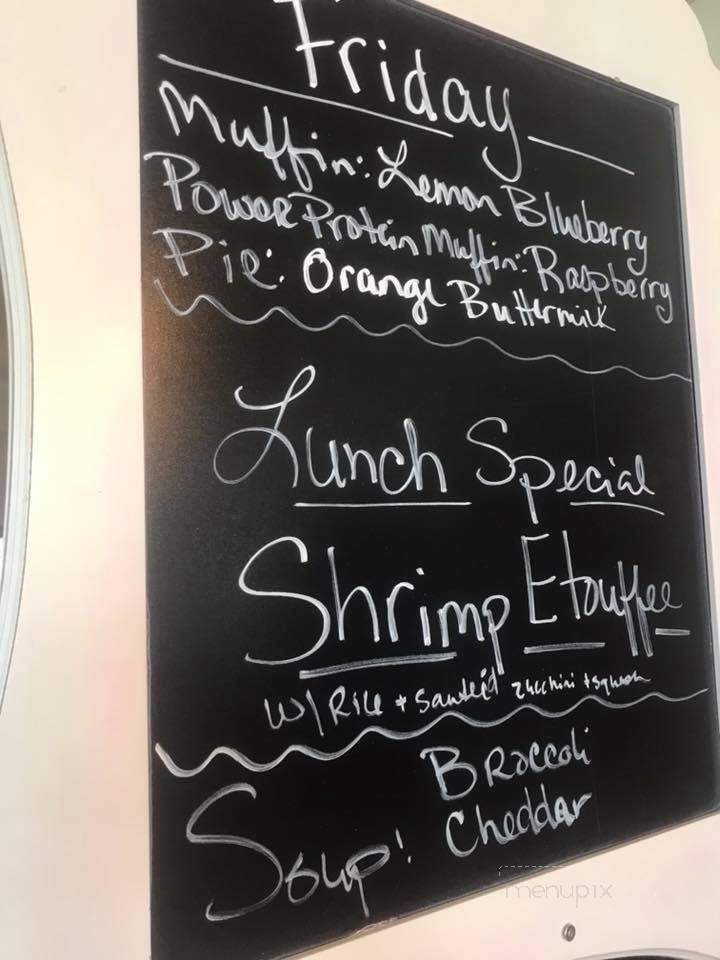 Friday
Muffin: Lemon Blueberry
Power Protein Muffin: Raspberry
Pie: Orange Buttermilk
Lunch Special
Shrimp Etouffee
w/ Rice + Sauteéd zucchini + squash
Broccoli
Soup! Cheddar
menupix